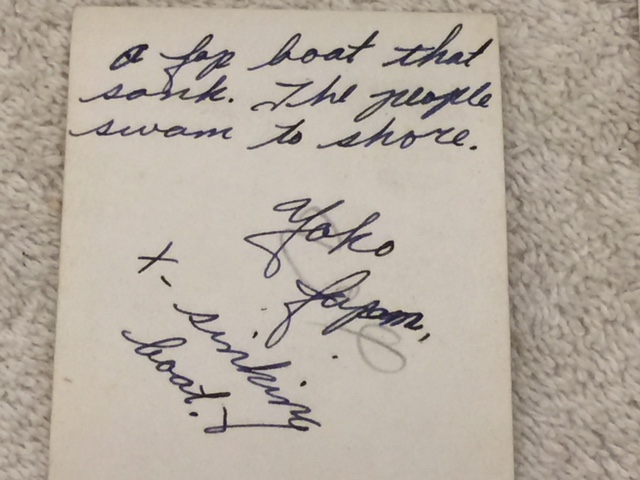 a Jap boat that
sank. The people
swam to shore.
Yoko
Japan,
x- sinking
boat.